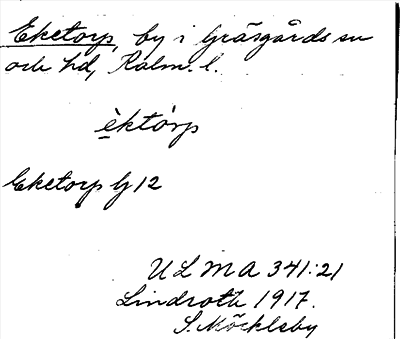 Eketorp, by i Gräsgårds sn
och hd, Kalm. l.
èktórp
Eketorp G 12
ULMA 341:21
Lindroth 1917.
S. Möckleby